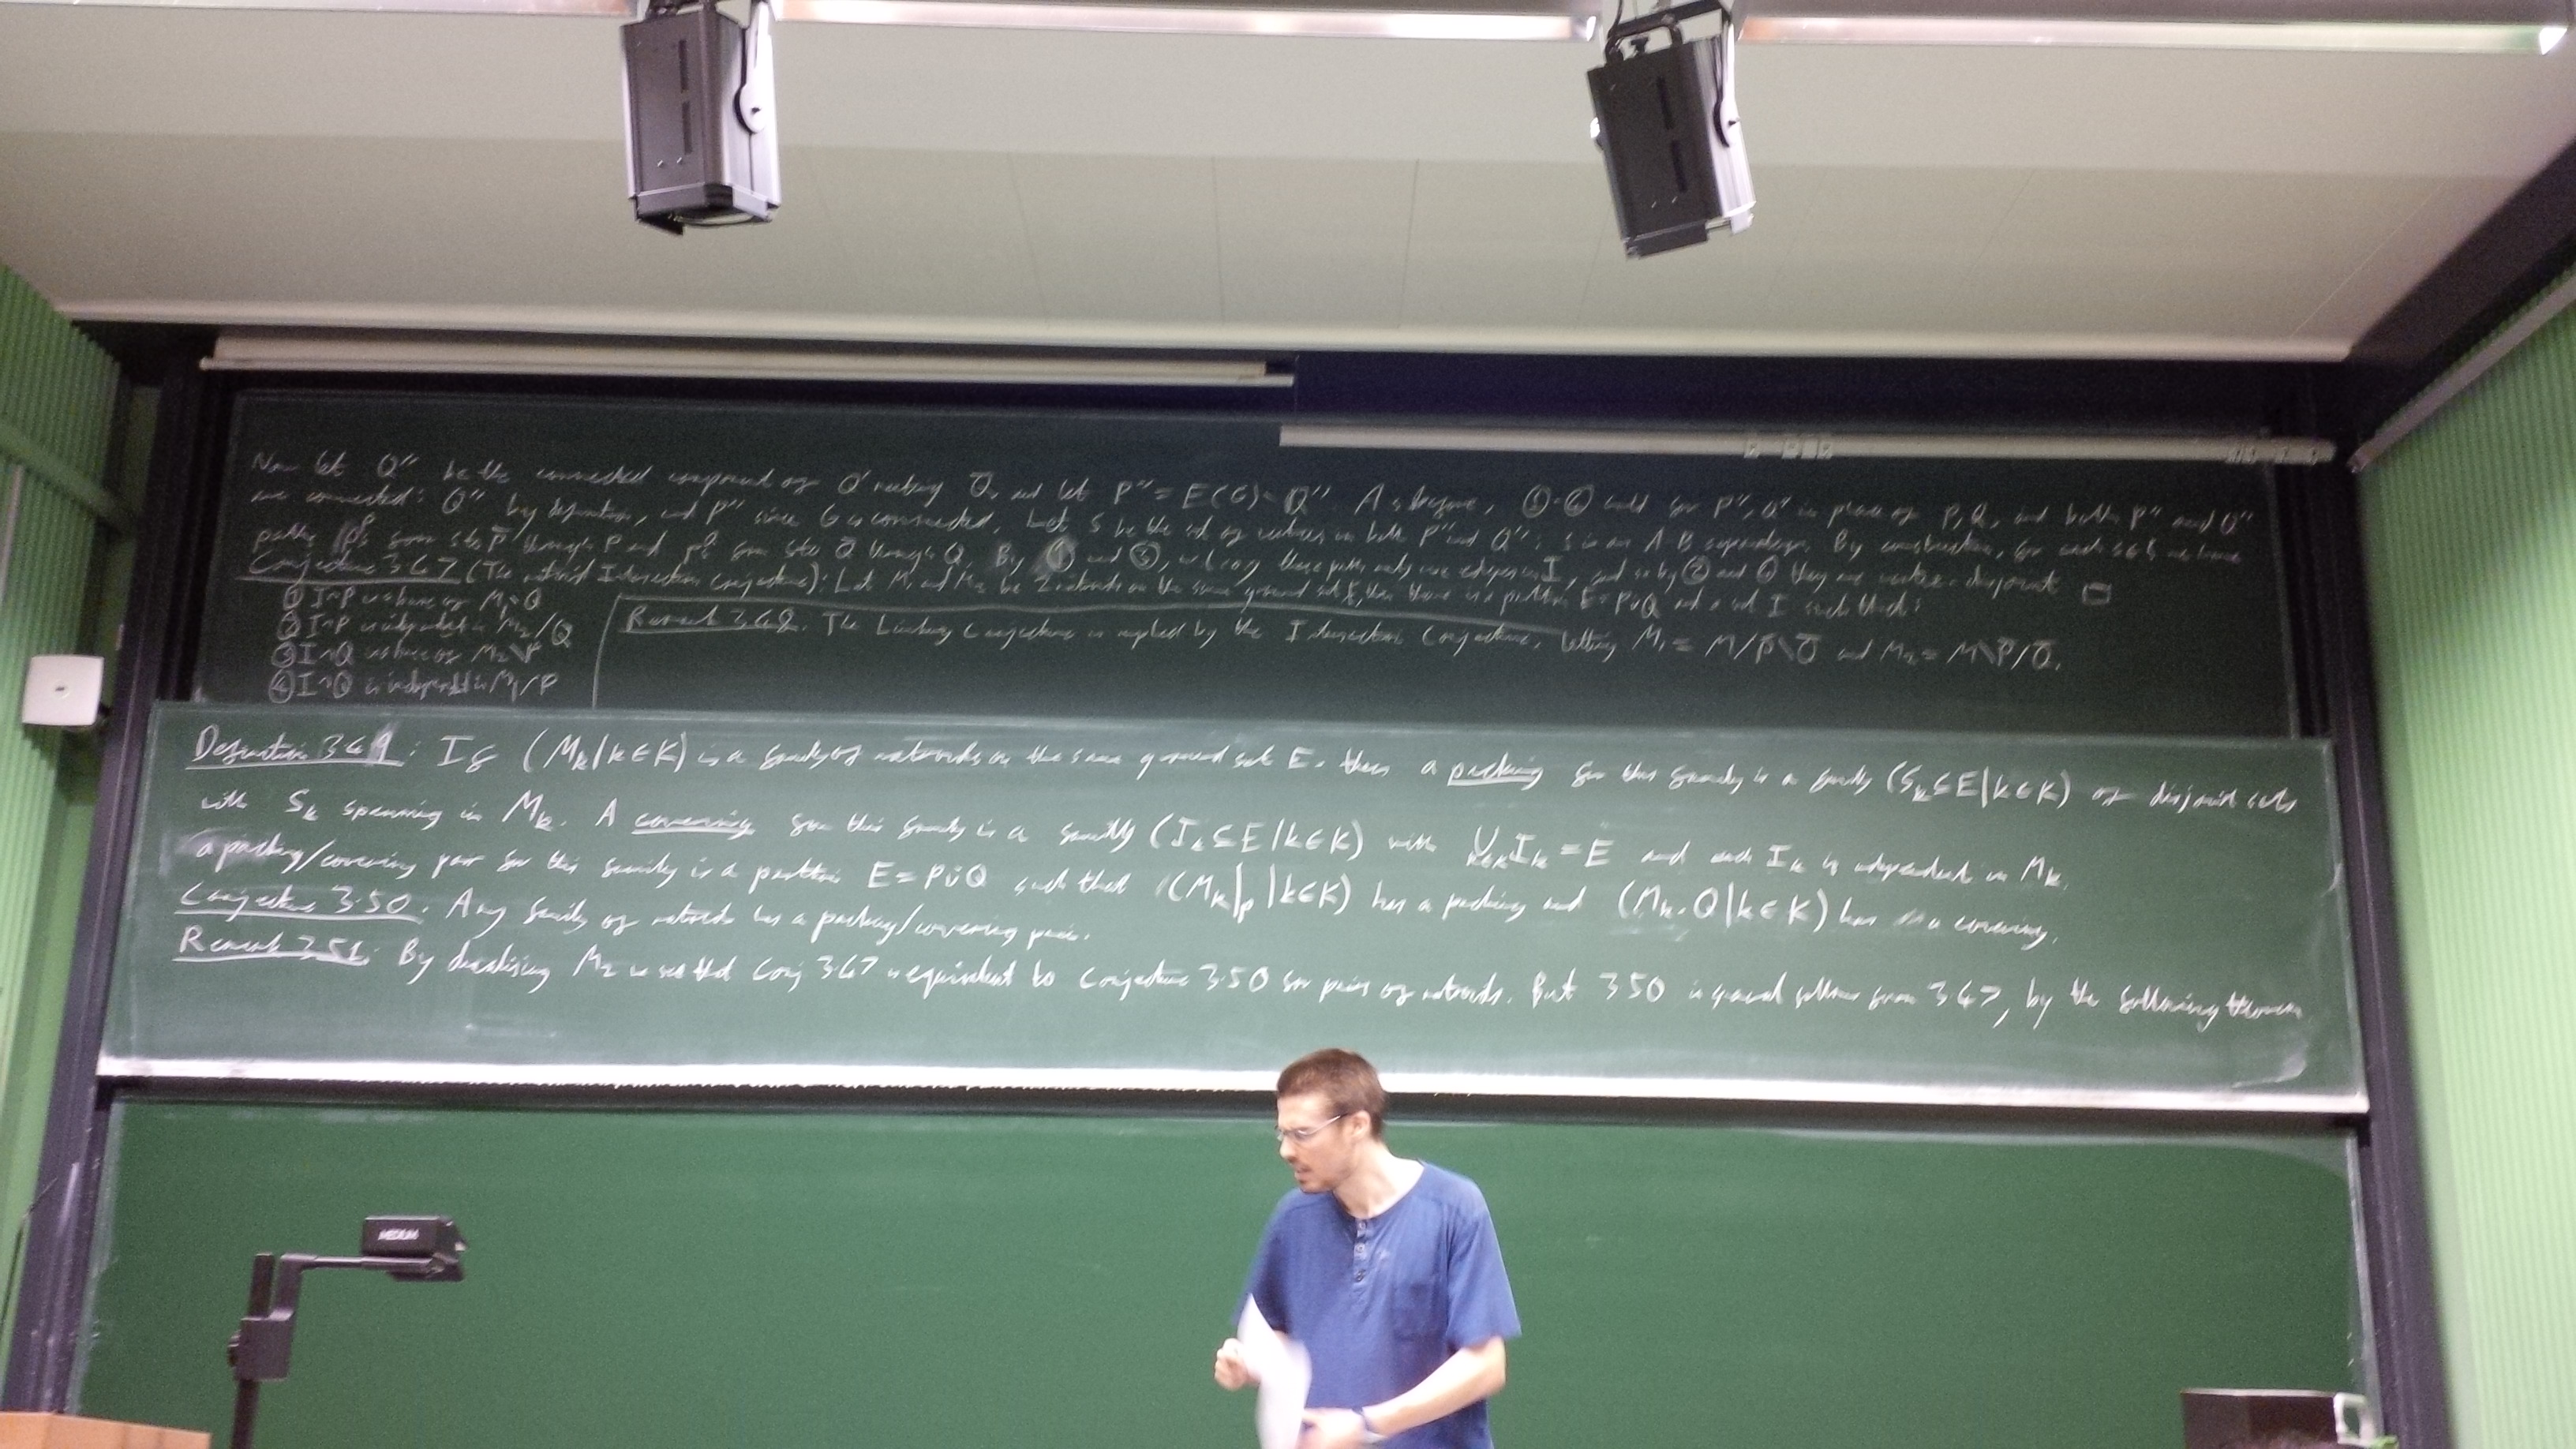 Now let Q'' be the connected component of Q' meeting Q̄, and let P'' = E(G) \ Q''. As before, ①-④ hold for P'', Q'' in place of P, Q, and both P'' and Q''
are connected: Q'' by definition, and P'' since G is connected. Let S be the set of vertices in both P'' and Q''; S is an A-B separator. By construction, for each s∈S we have
paths from s to P̄ through P and from s to Q̄ through Q. By ① and ③, these paths only use edges in I, and so by ② and ④ they are vertex-disjoint □
Conjecture 3.47 (The matroid Intersection conjecture): Let M₁ and M₂ be 2 matroids on the same ground set E, then there is a partition E = P∪̇Q and a set I such that:
① I∩P is a base of M₁\Q
② I∩P is independent in M₂/Q
③ I∩Q is a base of M₂\P
④ I∩Q is independent in M₁/P
Remark 3.48. The Linking Conjecture is implied by the Intersection Conjecture, letting M₁ = M/P̄\Q̄ and M₂ = M\P̄/Q̄.
Definition 3.49: If (Mₖ|k∈K) is a family of matroids on the same ground set E, then a packing for this family is a family (Sₖ⊆E|k∈K) of disjoint sets
with Sₖ spanning in Mₖ. A covering for this family is a family (Iₖ⊆E|k∈K) with ⋃ₖ∈K Iₖ = E and each Iₖ is independent in Mₖ.
a packing/covering pair for this family is a partition E = P∪̇Q such that (Mₖ|P |k∈K) has a packing and (Mₖ.Q|k∈K) has a covering.
Conjecture 3.50. Any family of matroids has a packing/covering pair.
Remark 3.51: By dualising M₂ we see that Conj 3.47 is equivalent to Conjecture 3.50 for pairs of matroids. But 3.50 in general follows from 3.47, by the following theorem
MEDIUM